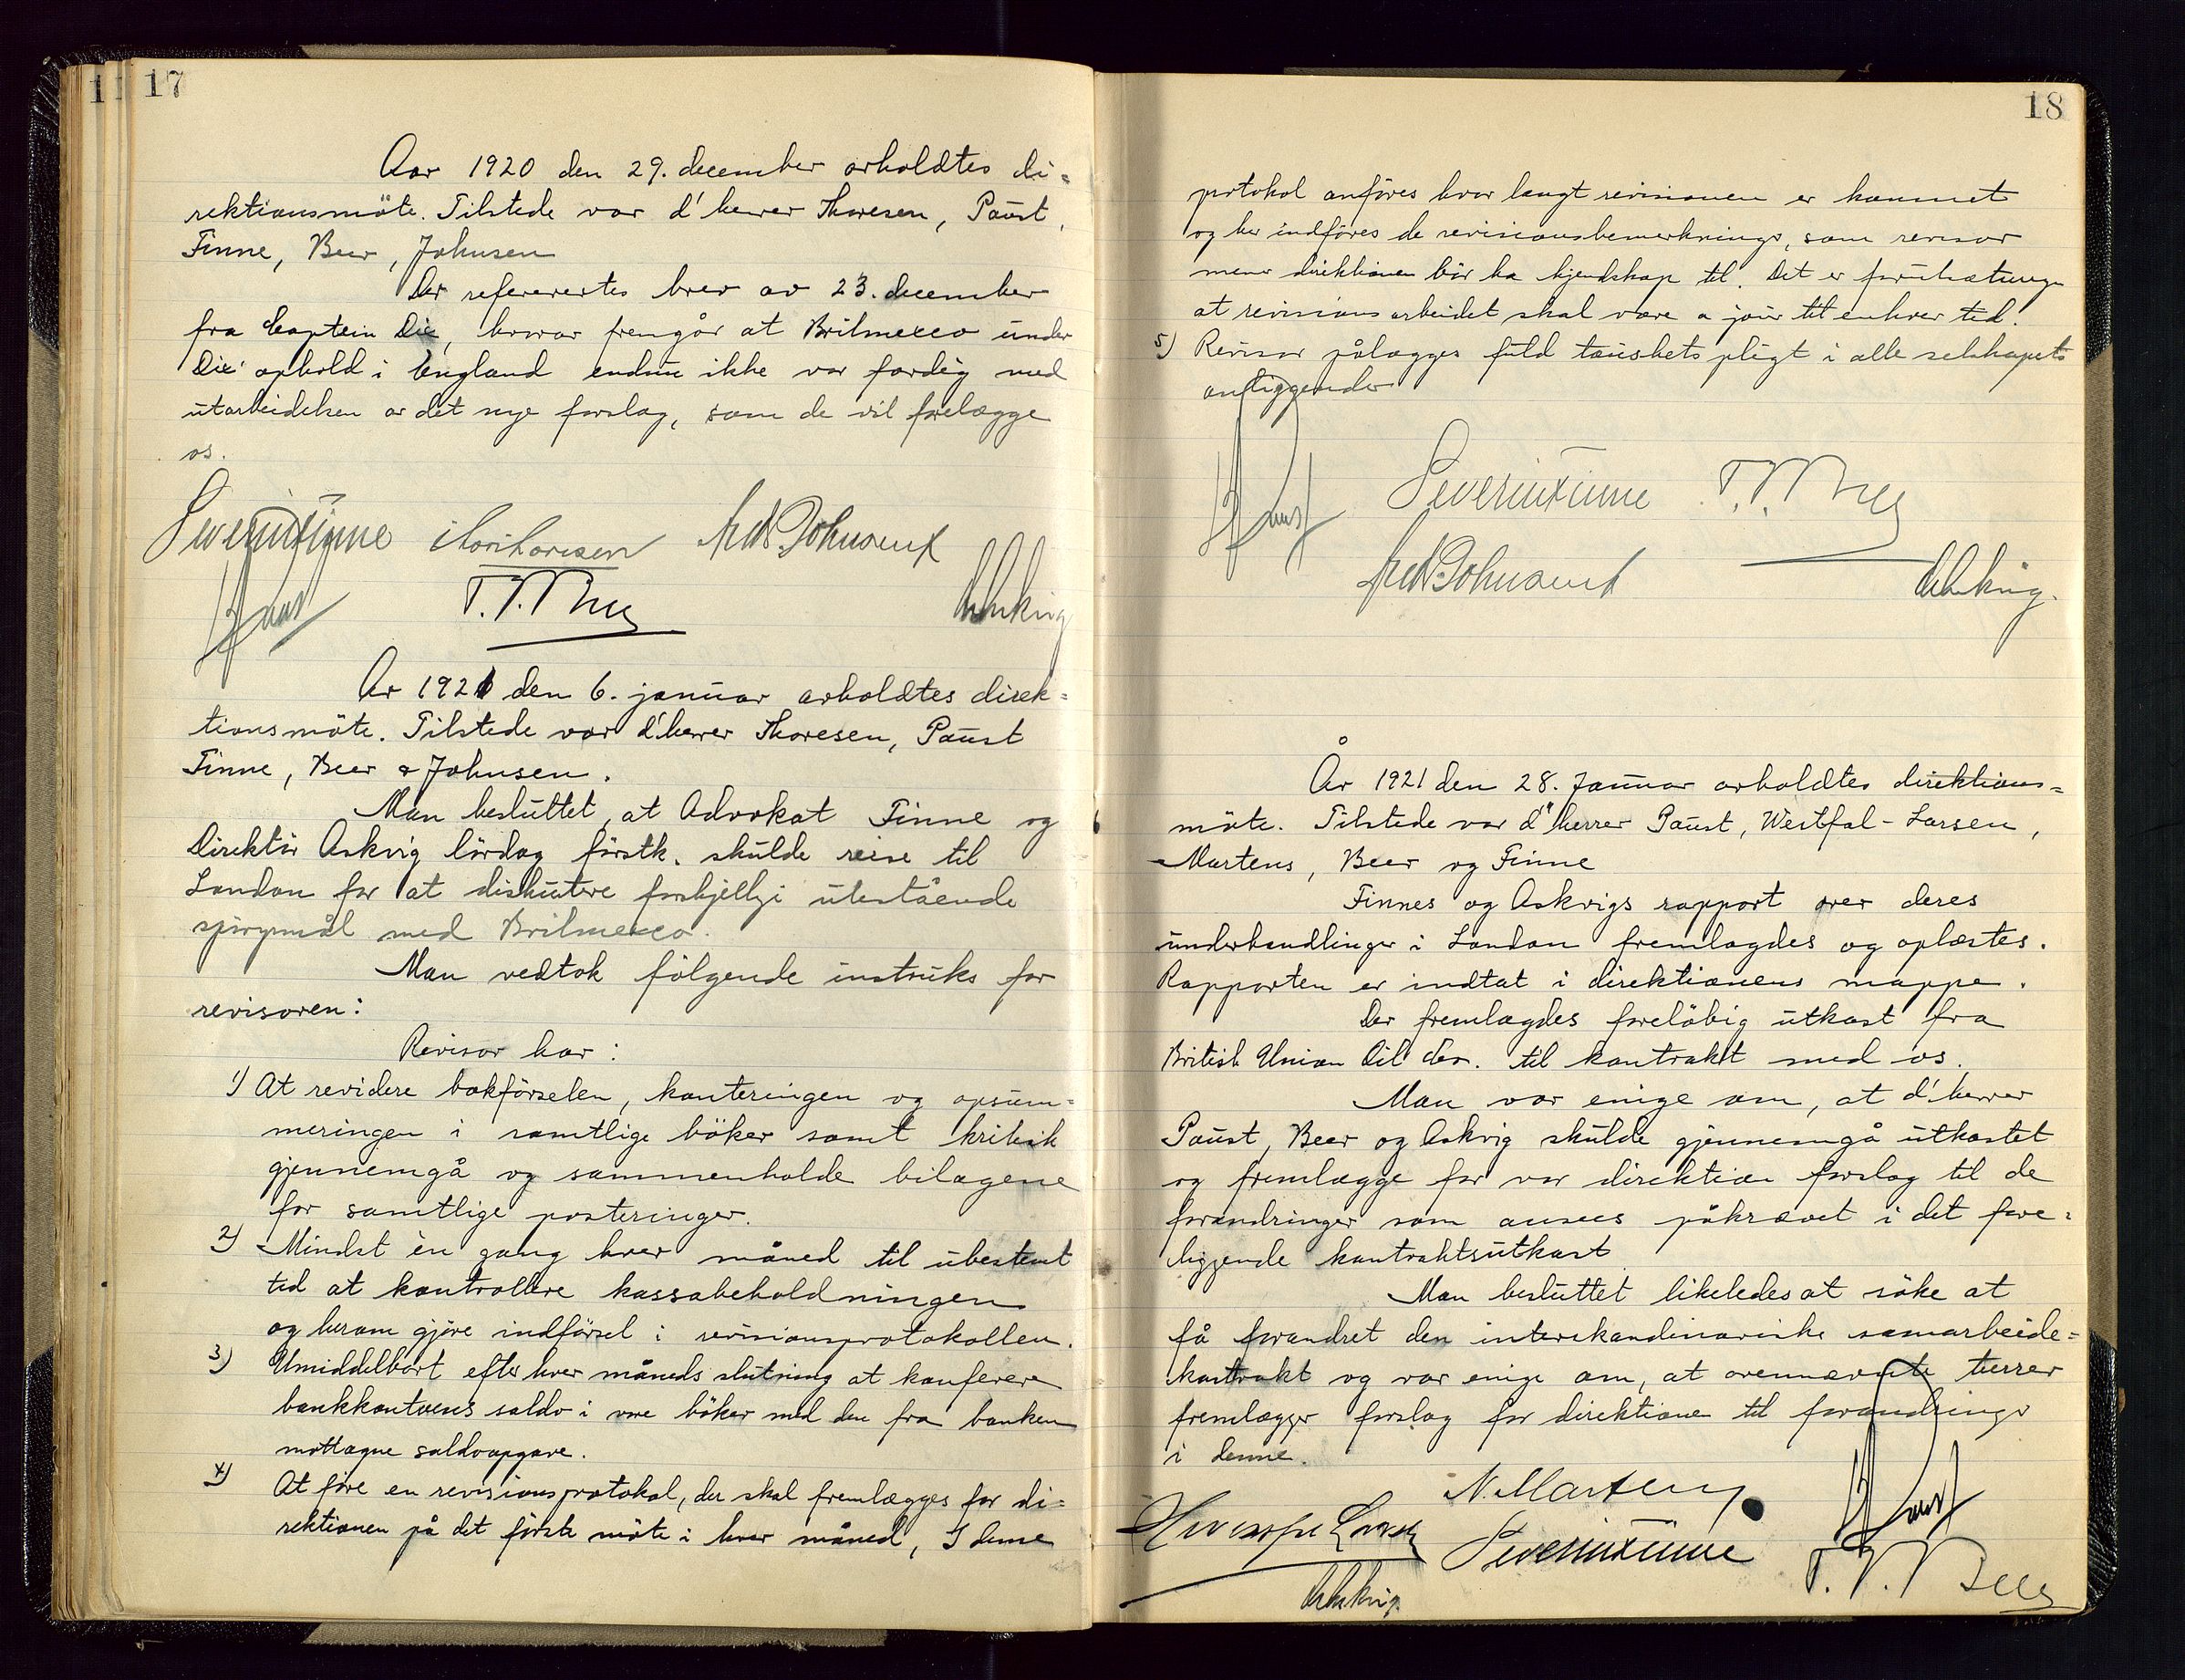 17
Aar 1920 den 29. december avholdtes di=
rektionsmöte. Tilstede var d'herrer Thoresen, Paust,
Finne, Beer, Johnsen
Der refererertes brev av 23. december
fra Captein Die, hvorav fremgår at Brilmexco under
Die' ophold i England endnu ikke var færdig med
utarbeidelsen av det nye forslag, som de vil forelægge
os.
Severin Finne Thor Thoresen Fredr. Johnsen
Paust T. T. Beer Askvig
År 1921 den 6. januar avholdtes direk=
tionsmöte. Tilstede var d'herrer Thoresen, Paust
Finne, Beer & Johnsen.
Man besluttet, at Advokat Finne og
Direktör Askvig lördag förstk. skulde reise til
London for at diskutere forskjellige utestående
spörgsmål med Brilmexco.
Man vedtok fölgende instruks for
revisoren:
Revisor har:
1) At revidere bokförselen, konteringen og opsum=
meringen i samtlige böker samt kritisk
gjennemgå og sammenholde bilagene
for samtlige posteringer.
2) Mindst èn gang hver måned til ubestemt
tid at kontrollere kassabeholdningen
og herom gjöre indförsel i revisionsprotokollen.
3) Umiddelbart efter hver måneds slutning at konferere
bankkontoens saldo i vore böker med den fra banken
mottagne saldoopgave.
4) At före en revisionsprotokol, der skal fremlægges for di=
rektionen på det förste möte i hver måned, I denne
18
protokol anföres hvor langt revisionen er kommet
og her indföres de revisionsbemerkninger, som revisor
mener direktionen bör ha kjendskap til. Det er forutsætningen
at revisionsarbeidet skal være a jour til enhver tid.
5) Revisor pålægges fuld taushetspligt i alle selskapets
anliggender
Paust Severin Finne T. T. Beer
Fredr. Johnsen Askvig.
År 1921 den 28. Januar avholdtes direktions=
möte. Tilstede var d'herrer Paust, Westfal-Larsen,
Martens, Beer og Finne
Finnes og Askvigs rapport over deres
underhandlinger i London fremlagdes og oplæstes.
Rapporten er indtat i direktionens mappe.
Der fremlagdes foreløbig utkast fra
British Union Oil Co. til kontrakt med os.
Man var enige om, at d'herrer
Paust, Beer og Askvig skulde gjennemgå utkastet
og fremlægge for vor direktion forslag til de
forandringer som ansees påkrævet i det fore=
liggende kontraktsutkast
Man besluttet likeledes at söke at
få forandret den interskandinaviske samarbeide=
kontrakt og var enige om, at ovennævnte herrer
fremlægger forslag for direktionen til forandringer
i denne.
N. Martens Paust
Severin Finne T. T. Beer
Askvig